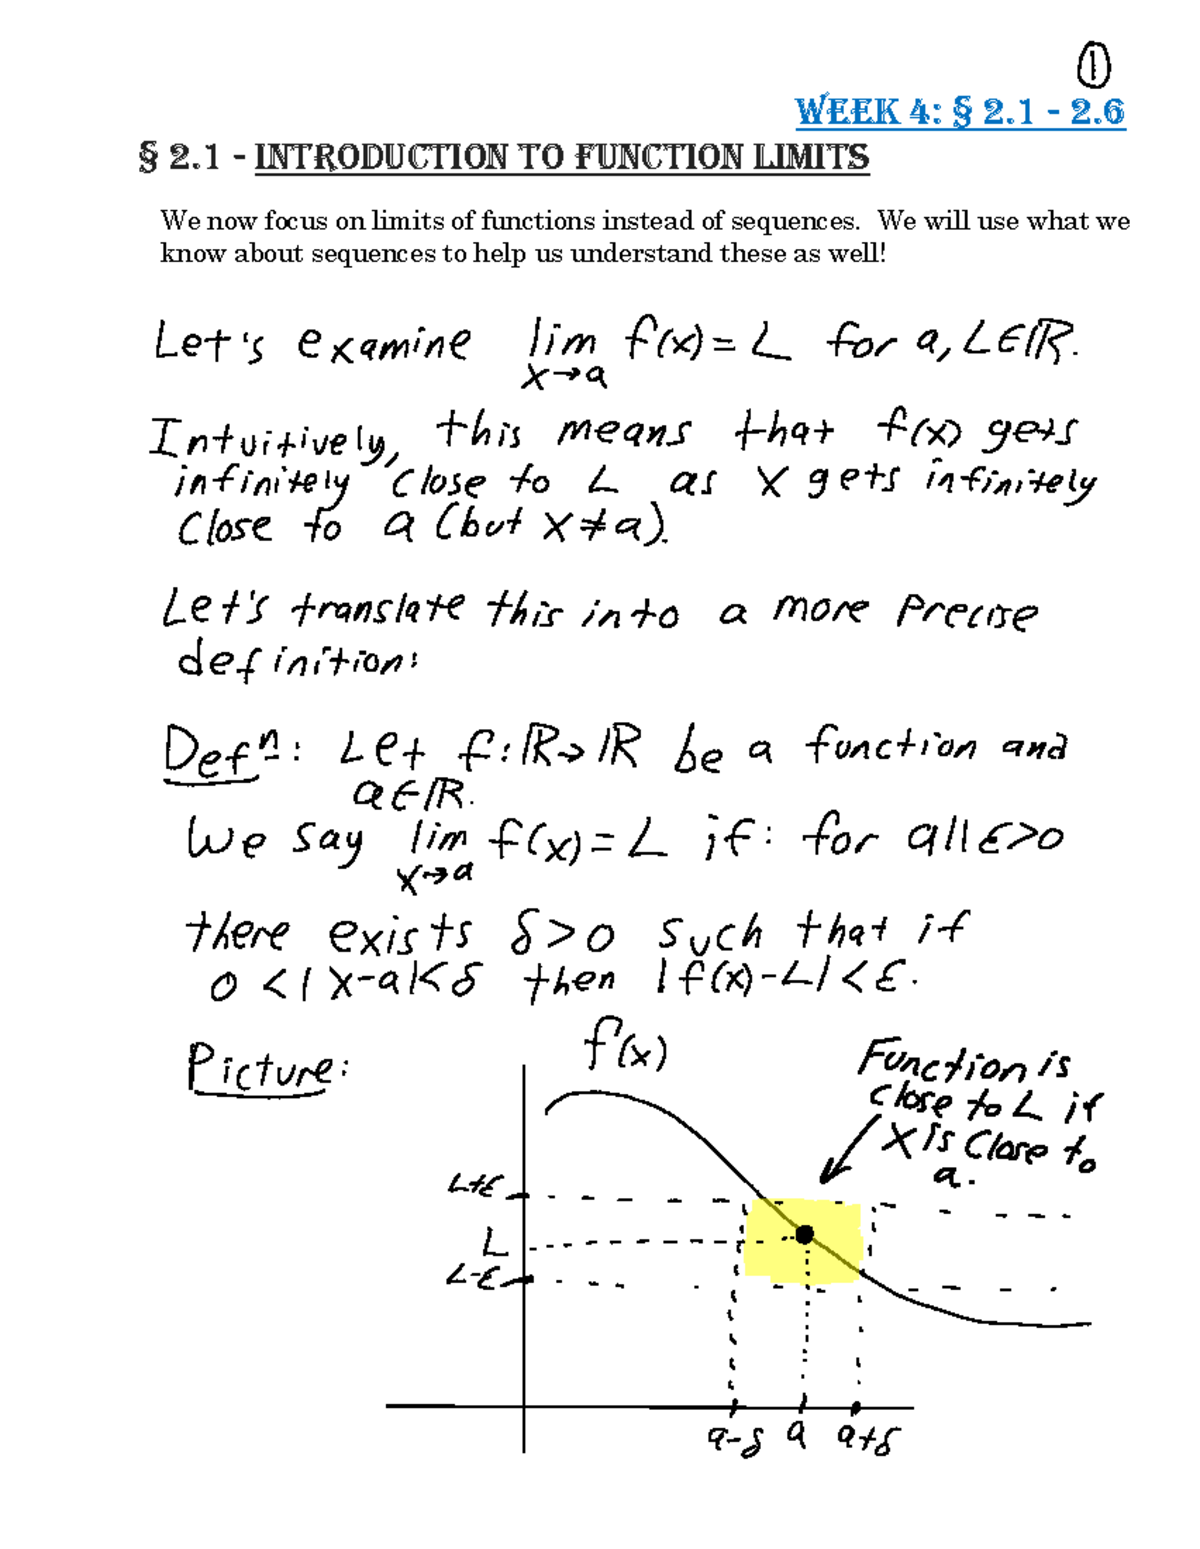 ①
WEEK 4: § 2.1 - 2.6
§ 2.1 - INTRODUCTION TO FUNCTION LIMITS
We now focus on limits of functions instead of sequences. We will use what we
know about sequences to help us understand these as well!
Let's examine lim f(x) = L for a, L∈ℝ.
x→a
Intuitively, this means that f(x) gets
infinitely close to L as x gets infinitely
close to a (but x≠a).
Let's translate this into a more precise
definition:
Defⁿ: Let f:ℝ→ℝ be a function and
a∈ℝ.
We say lim f(x) = L if: for all ε>0
x→a
there exists δ>0 such that if
0<|x-a|<δ then |f(x)-L|<ε.
Picture:
f(x)
Function is
close to L if
x is close to
a.
L+ε
L
L-ε
a-δ a a+δ